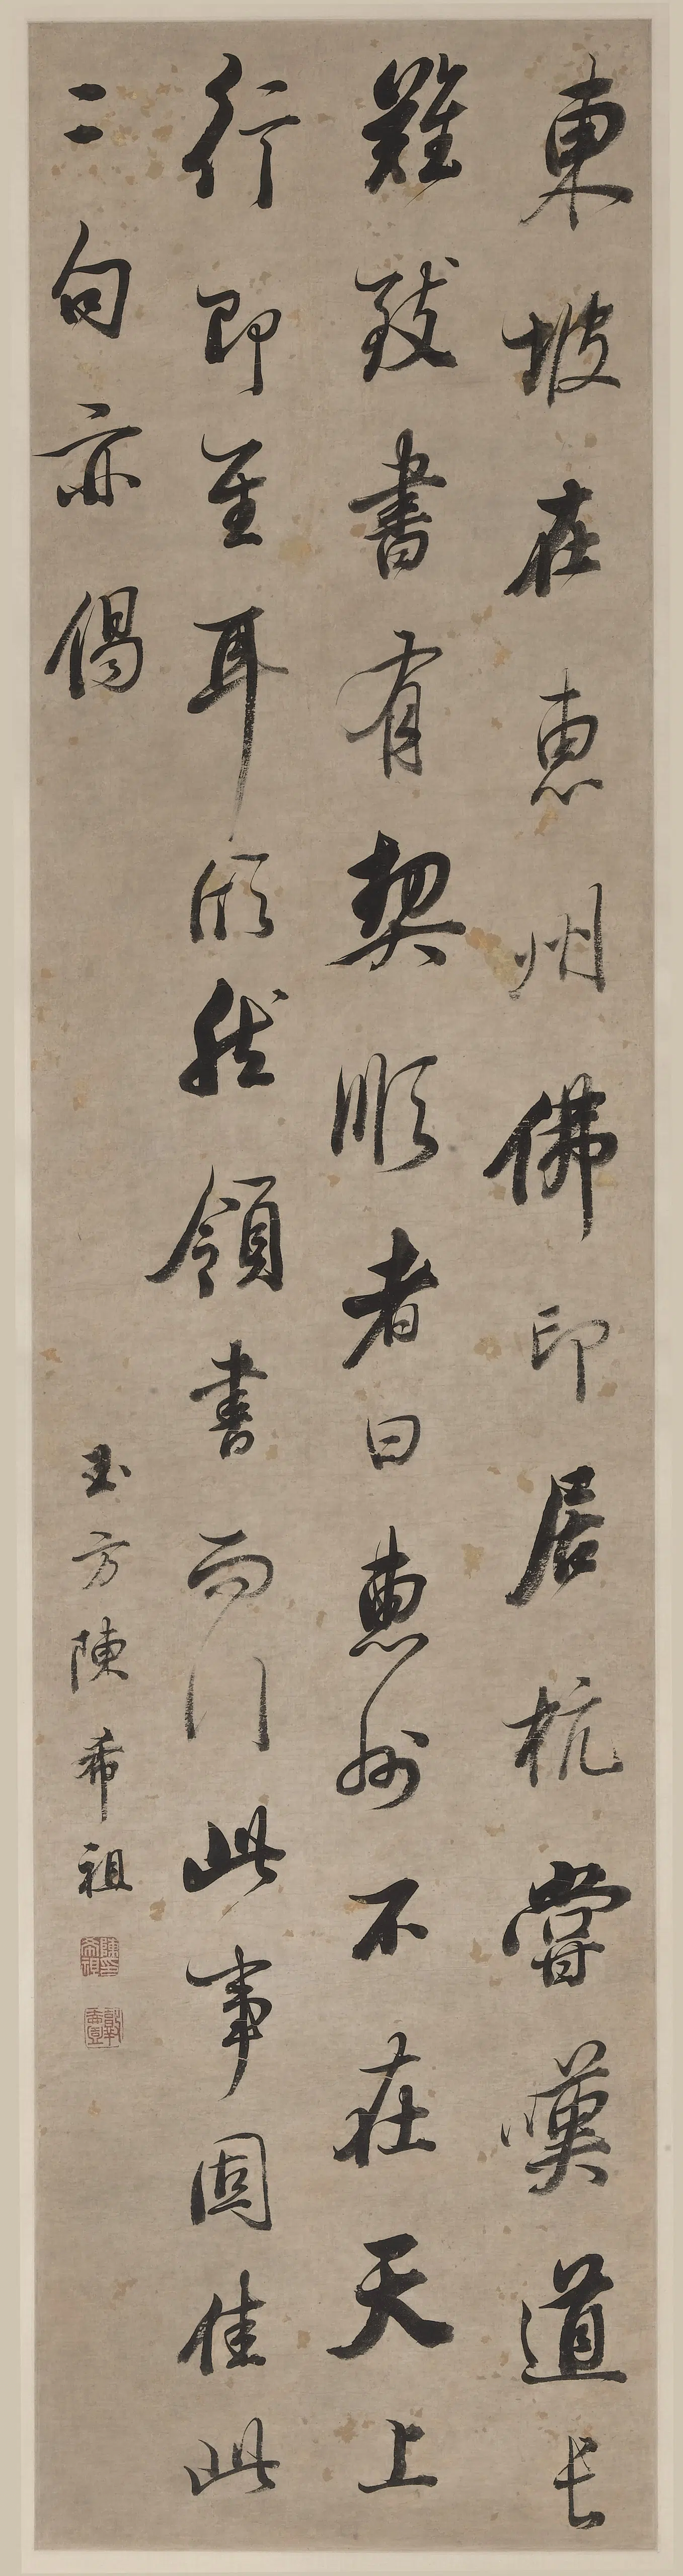 東坡在惠州佛印居杭嘗嘆道長
難致書有契順者曰惠州不在天上
行即至耳欣然領書而行此事固佳此
二句亦偈
玉方陳希祖
陳希祖印